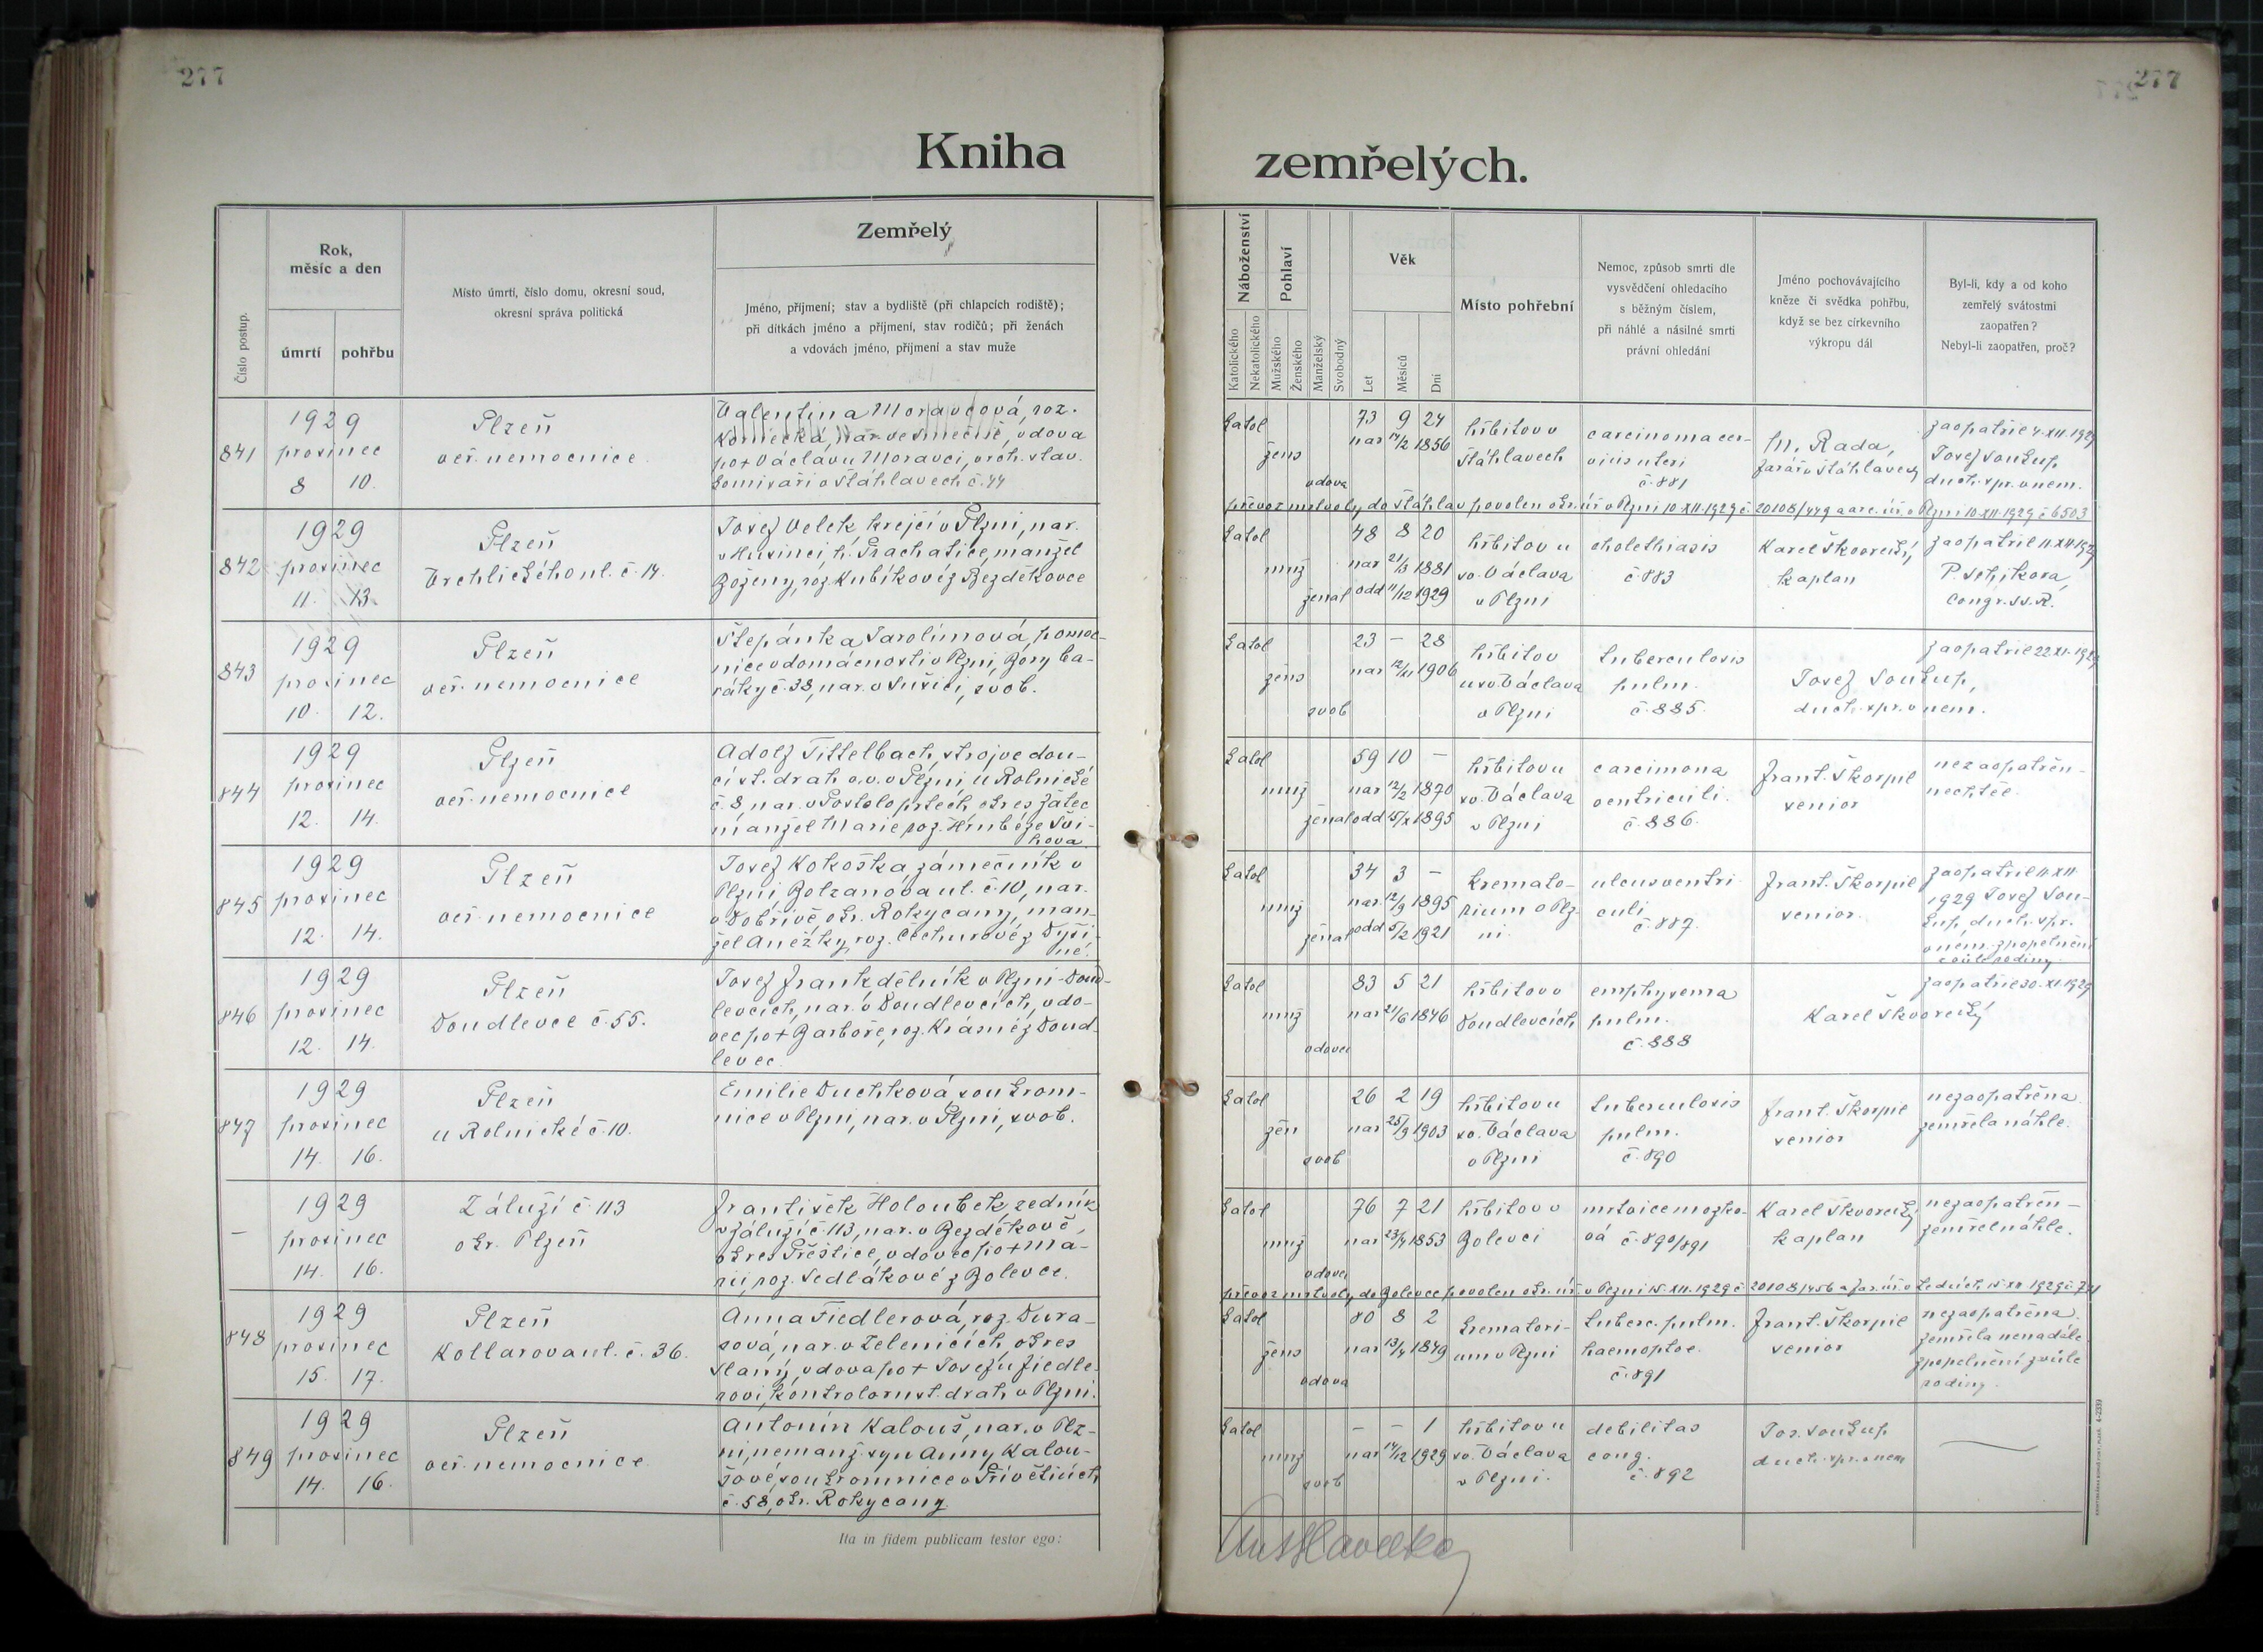 277
277
Kniha zemřelých.
Číslo postup.
Rok,
měsíc a den
úmrtí
pohřbu
Místo úmrtí, číslo domu, okresní soud,
okresní správa politická
Zemřelý
Jméno, příjmení; stav a bydliště (při chlapcích rodiště);
při dítkách jméno a příjmení, stav rodičů; při ženách
a vdovách jméno, příjmení a stav muže
Náboženství
Katolického
Nekatolického
Pohlaví
Mužského
Ženského
Manželský
Svobodný
Věk
Let
Měsíců
Dní
Místo pohřební
Nemoc, způsob smrti dle
vysvědčení ohledacího
s běžným číslem,
při náhlé a násilné smrti
právní ohledání
Jméno pochovávajícího
kněze či svědka pohřbu,
když se bez církevního
výkropu dál
Byl-li, kdy a od koho
zemřelý svátostmi
zaopatřen?
Nebyl-li zaopatřen, proč?
841
1929
prosinec
8 10.
Plzeň
veř. nemocnice.
Valentina Moravcová, roz.
nar. ve Smečně, vdova
po + Václavu Moravci, vrch. stav.
komisaři v Šťáhlavech č. 44
katol
žens
vdova
73 9 24
nar 14/2 1856
hřbitov v
Šťáhlavech
carcinoma cer-
vicis uteri
č. 881
M. Rada,
farář v Šťáhlavech
zaopatřil 4. XII. 1929
Josef Soukup,
duch. spr. v nem.
převoz mrtvoly do Šťáhlav povolen okr. úř. v Plzni 10. XII. 1929 č. 20108/449 a arc. úř. v Plzni 10. XII. 1929 č. 6503
842
1929
prosinec
11. 13.
Plzeň
Vrchlického ul. č. 14.
Josef Velek, krejčí v Plzni, nar.
v Husinci h. Prachatice, manžel
Boženy, roz. Kubíkové z Bezděkovce
katol
muž
ženat
48 8 20
nar 21/3 1881
odd 11/12 1929
hřbitov u
sv. Václava
v Plzni
cholethiasis
č. 883
Karel Škvorecký,
kaplan
zaopatřil 11. XII. 1929
Congr. SS. R.
843
1929
prosinec
10. 12.
Plzeň
veř. nemocnice
Štepánka Jarolímová, pomoc-
nice v domácnosti v Plzni, Bory ba-
ráky č. 38, nar. v Sušici, svob.
katol
žens
svob
23 - 28
nar 12/XI 1906
hřbitov
u sv. Václava
v Plzni
tuberculosis
pulm.
č. 885.
Josef Soukup,
duch. spr. v nem.
zaopatřil 22. XI. 1929
844
1929
prosinec
12. 14.
Plzeň
veř. nemocnice
Adolf Tittelbach, strojvedou-
cí st. drah o. v. v Plzni, U Rolnické
č. 8, nar. v Postoloprtech, okres Žatec
manžel Marie roz. ze Švi-
hova
katol
muž
ženat
59 10 -
nar 12/2 1870
odd 15/X 1895
hřbitov u
sv. Václava
v Plzni
carcimona
ventriculi.
č. 886.
Frant. Škorpil
senior
nezaopatřen -
nechtěl.
845
1929
prosinec
12. 14.
Plzeň
veř. nemocnice
Josef Kokoška, zámečník v
Plzni, Bolzanova ul. č. 10, nar.
v Dobřívě okr. Rokycany, man-
žel Anežky, roz. Cechurové z Dýši-
né.
katol
muž
ženat
34 3 -
nar. 12/9 1895
odd 5/2 1921
kremato-
rium v Plz-
ni.
ulcus ventri
culi
č. 887.
Frant. Škorpil
senior.
zaopatřil 11. XII.
1929 Josef Sou-
kup, duch. spr.
v nem. zpopelnění
z vůle rodiny.
846
1929
prosinec
12. 14.
Plzeň
Doudlevce č. 55.
Josef Frank, dělník v Plzni-Doud-
levcích, nar. v Doudlevcích, vdo-
vec po + Barboře, roz. Krásné z Doud-
levec.
katol
muž
vdovec
83 5 21
nar 21/6 1846
hřbitov v
Doudlevcích
emphysema
pulm.
č. 888
Karel Škvorecký
zaopatřil 30. XI. 1929
847
1929
prosinec
14. 16.
Plzeň
u Rolnické č. 10.
Emilie Duchková, soukrom-
nice v Plzni, nar. v Plzni, svob.
katol
žen
svob
26 2 19
nar 25/9 1903
hřbitov u
sv. Václava
v Plzni
tuberculosis
pulm.
č. 890
Frant. Škorpil
senior
nezaopatřena.
zemřela náhle.
-
1929
prosinec
14. 16.
Záluží č. 113
okr. Plzeň
František Holoubek, zedník
v Záluží č. 113, nar. v Bezděkově,
okres Přeštice, vdovec po + Ma-
rii, roz. Sedlákové z Bolevce.
katol
muž
vdovec
76 7 21
nar 23/4 1853
hřbitov v
Bolevci
mrtvice mozko-
vá č. 890/891
Karel Škvorecký
kaplan
nezaopatřen -
zemřel náhle.
převoz mrtvoly do Bolevce povolen okr. úř. v Plzni 15. XII. 1929 č. 20108/456 a far. úř. v Ledcích 15. XII. 1929 č. 721
848
1929
prosinec
15. 17.
Plzeň
Kollarova ul. č. 36.
Anna Fiedlerová, roz. Dura-
sová, nar. v Želenicích, okres
Slaný, vdova po + Josefu Fiedle-
rovi, kontroloru st. drah v Plzni.
katol
žens
vdova
80 8 2
nar 13/4 1849
krematori-
um v Plzni
tuberc. pulm.
haemoptoe.
č. 891
Frant. Škorpil
senior
nezaopatřena.
zemřela nenadále
zpopelnění z vůle
rodiny.
849
1929
prosinec
14. 16.
Plzeň
veř. nemocnice.
Antonín Kalouš, nar. v Plz-
ni, nemanž. syn Anny Kalou-
šové, soukromnice v Přívěticích
č. 58, okr. Rokycany
katol
muž
svob
- - 1
nar 14/12 1929
hřbitov u
sv. Václava
v Plzni.
debilitas
cong.
č. 892
Jos. Soukup
duch. spr. v nem
Ita in fidem publicam testor ego: